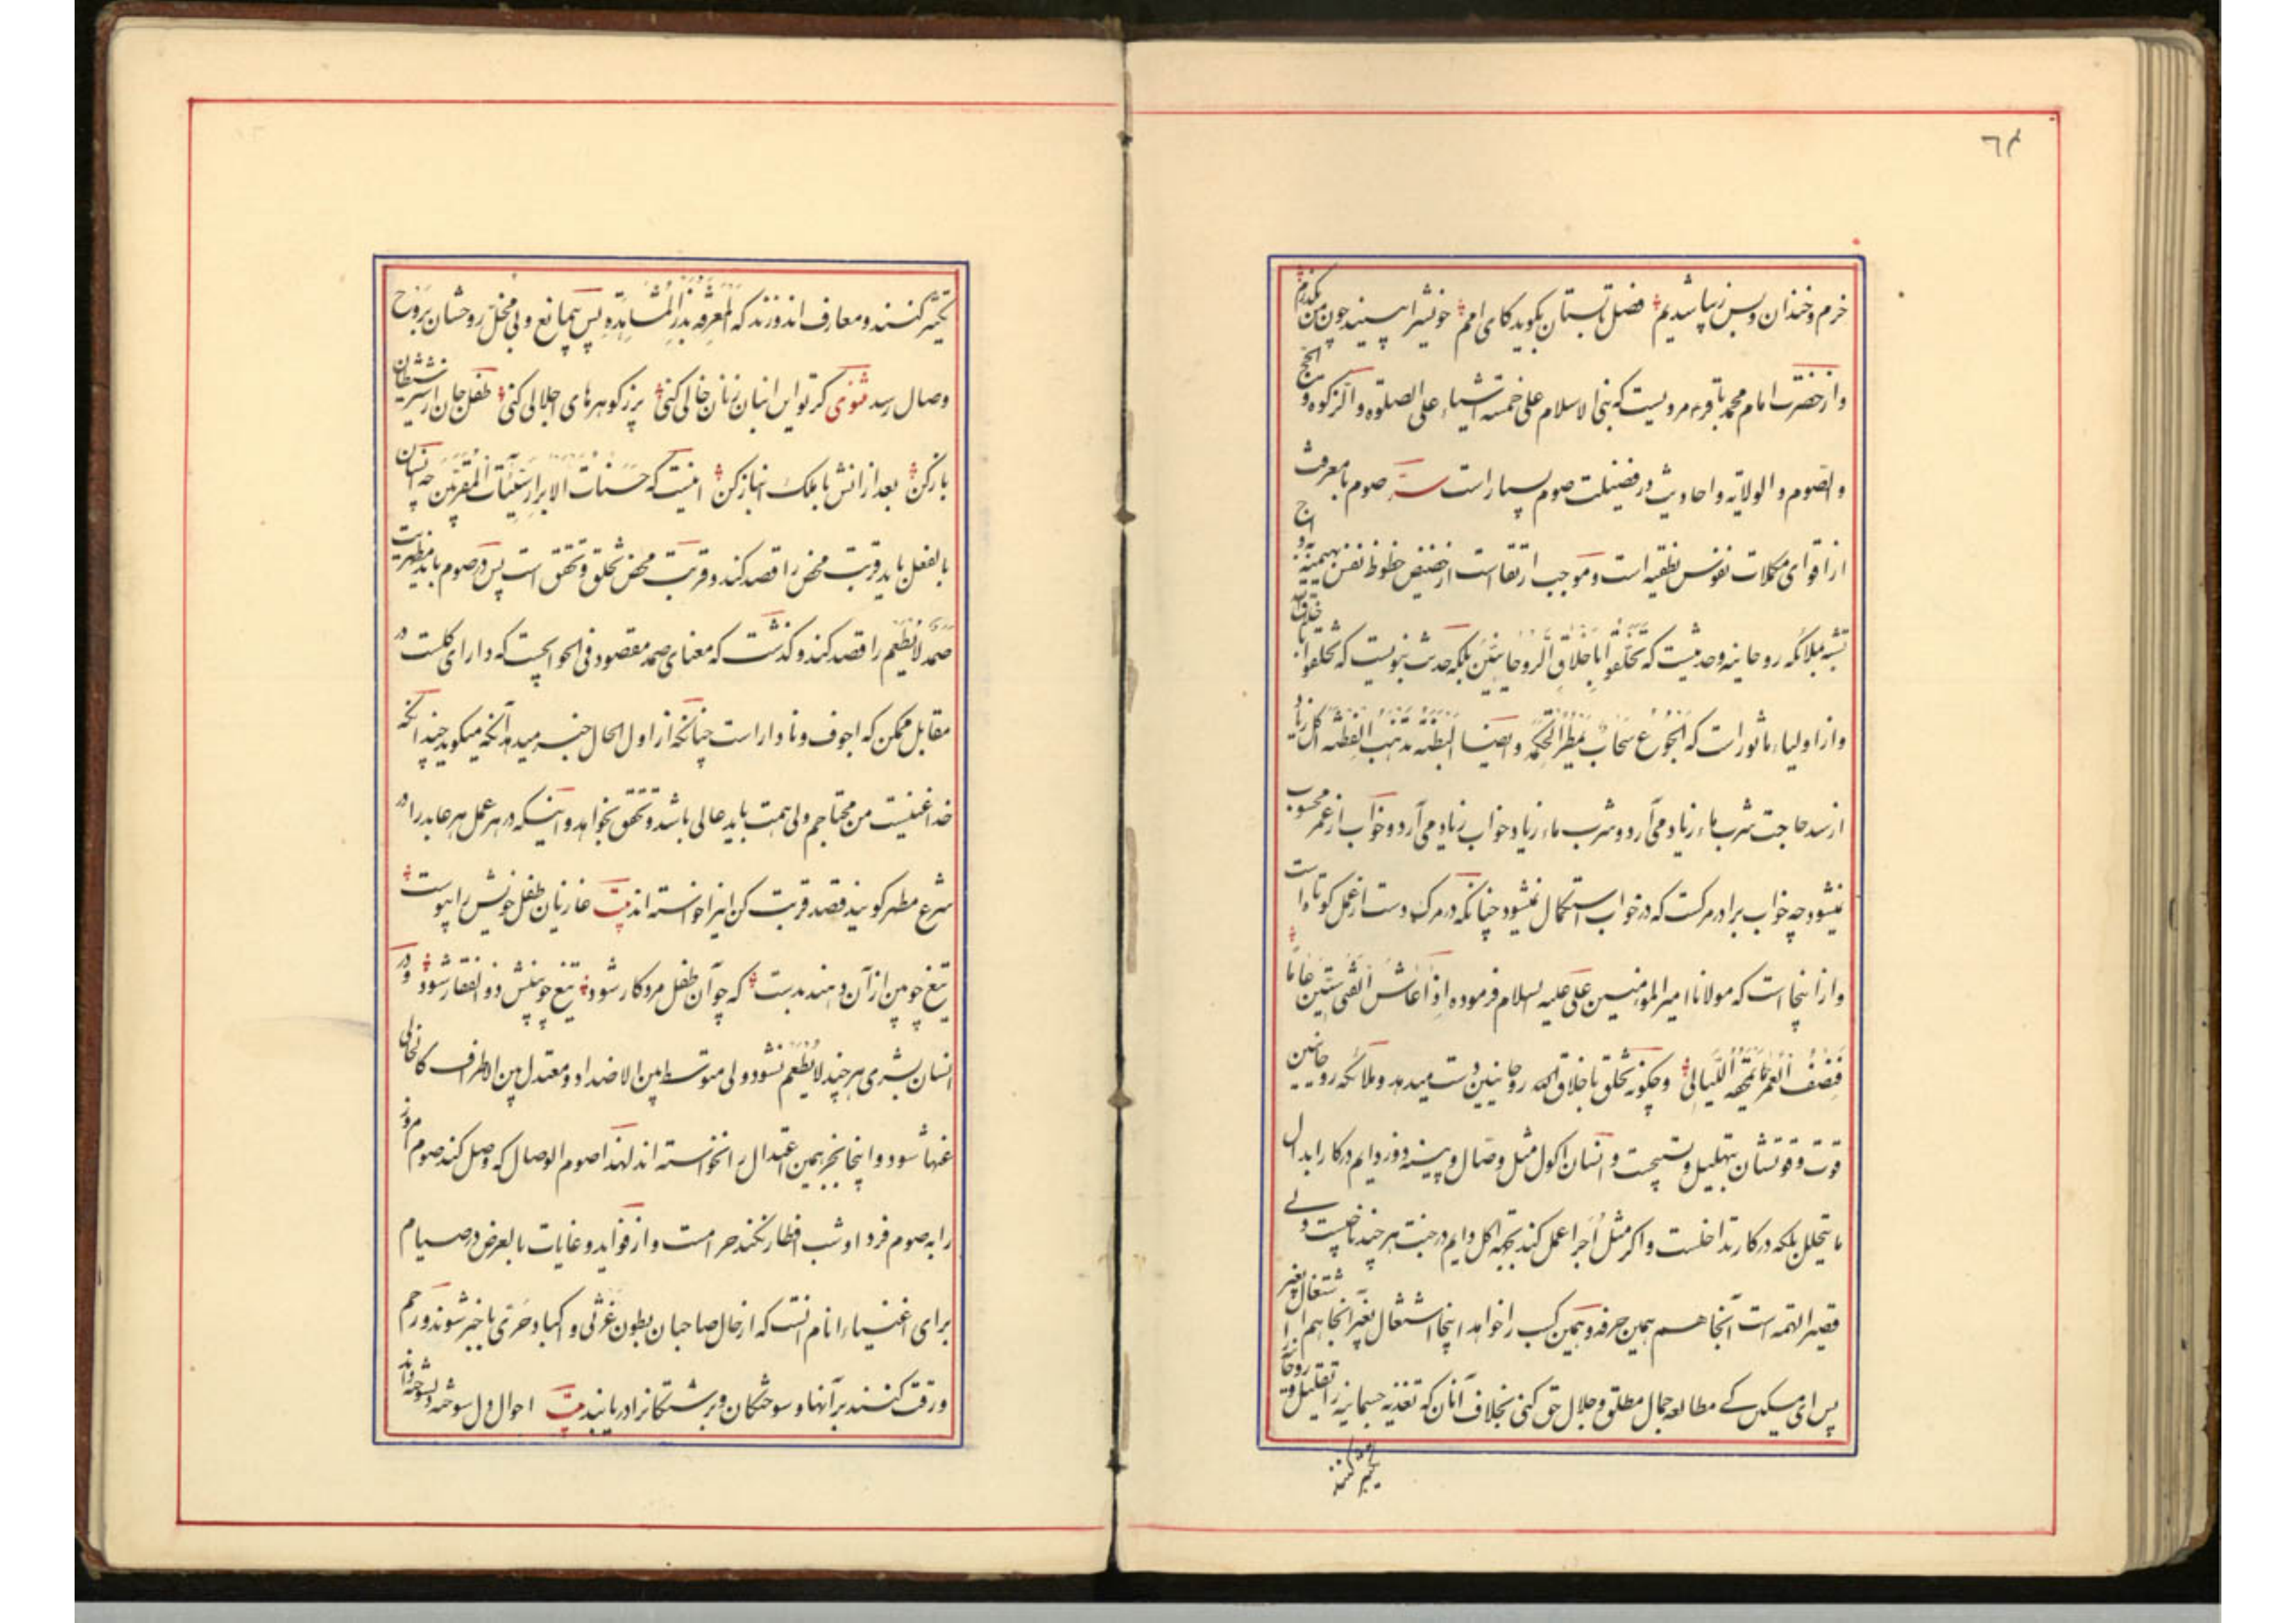 ٦٤
خرم و خندان و بس زیبا شدیم فصل تابستان بکوید کای امم خویشرا بینید چون من بکذرم
و از حضرت امام محمد باقر ع مرویست که بنی الاسلام علی خمسة اشیاء علی الصلوة و الزکوة و الحج
و الصوم و الولایه و احادیث در فضیلت صوم بسیار است سر صوم بامعرفت
از اقوای مکملات نفوس نطقیه است و موجب ارتقا است از حضیض حظوظ نفس بهیمیه باوج
تشبه بملائکه روحانیه وحدیثیست که تَخَلَّقُوا بِاَخْلاقِ الرُّوحانِیّینَ بلکه حدیث نبویست که تخلقوا باخلاق الله
و از اولیاء ماثور است که اَلْجُوعُ سَحابٌ یُمْطِرُ الْحِکْمَةَ و ایضا اَلْبِطْنَةُ تَذْهَبُ الْفِطْنَةَ اکل زیاد
از سد حاجت شرب ماء زیاد می‌آرد و شرب ماء زیاد خواب زیاد می‌آرد و خواب از عمر محسوب
نمیشود چه خواب برادر مرکست که در خواب استکمال نمیشود چنانکه در مرک و دست از عمل کوتاه است
و از اینجا است که مولانا امیر المؤمنین علی علیه السلام فرموده اِذا عاشَ الْفَتی سِتّینَ عاماً
فَنِصْفُ الْعُمْرِ تَمْحَقُهُ اللَّیالِی و چکونه تخلق باخلاق الله روحانیین دست میدهد و ملائکه روحانیین
قوت و قوتشان تهلیل و تسبیحست و انسان اکول مثل وصال و پینه دوز دایم در کار ابدال
ما یتحلل بلکه در کار تداخلست و اکر مثل اُجرا عمل کند بتهیه اکل دایم در جنت هر چند ناجیست ولی
قصیر الهمه است آنجا هم همین حرفه و همین کسب را خواهد اینجا اشتغال بغیر آنجا هم اشتغال بغیر
پس ای مسکین کی مطالعه جمال مطلق و جلال حق کنی بخلاف آنان که تغذیه جسمانیه را تقلیل و روحانیه را
تکثیر کنند
تکثیر کنند و معارف اندوزند که اَلْمَعْرِفَةُ بَذْرُ الْمُشاهَدَةِ پس بیمانع و بی مخل روحشان بَرَوْحِ
وصال رسد مثنوی کر تو این انبان ز نان خالی کنی پر ز کوهرهای اجلالی کنی طفل جان از شیر شیطان
باز کن بعد از انش با ملک انباز کن اینست که حَسَناتُ الاَبْرارِ سَیِّئاتُ الْمُقَرَّبینَ چه انسان
بالفعل باید قربت محض را قصد کند و قربت محض تخلق و تحقق است پس در صوم باید مظهریت
صَمَدٌ لا یُطْعَم را قصد کند و کذشت که معنای صمد مقصود فی الحوائجست که دارای کلست در
مقابل ممکن که اجوف و نادار است چنانکه از اول الحال خبر میدهد آنکه میکوید چند آنکه
خدا غنیست من محتاجم ولی همت باید عالی باشد و تحقق بخواهد و اینکه در هر عمل هر عابد را در
شرع مطهر کویند قصد قربت کن اینرا خواسته اند بیت غازیان طفل خویش را پیوست
تیغ چوبین از آن دهند بدست که چو آن طفل مرد کار شود تیغ چوبینش ذو الفقار شود و در
انسان بشری هر چند لا یُطْعَم نشود ولی متوسط بین الاضداد و معتدل بین الاطراف کالخالی
عنها شود و اینجا بجز همین اعتدال را نخواسته اند لهذا صوم الوصال که وصل کند صوم امروز
را به صوم فردا و شب افطار نکند حرامست و از فواید و غایات بالعرض در صیام
برای اغنیاء انام انست که از حال صاحبان بطون غَرْثی و اکباد حَرّی باخبر شوند و رحم
و رقت کنند بر آنها و سوختکان و برشتکانرا دریابند بیت احوال دل سوخته دلسوخته داند